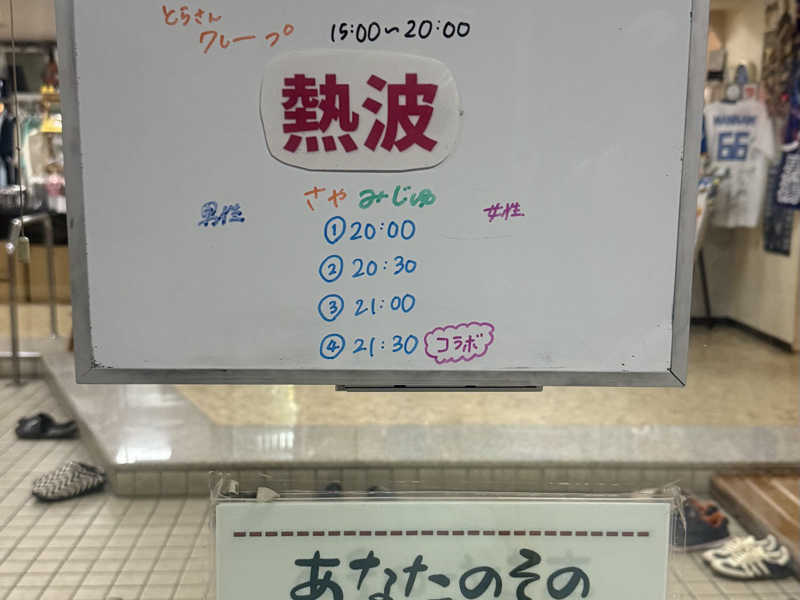 とらさん
クレープ 15:00~20:00
熱波
さやみじゅ
男性 女性
①20:00
②20:30
③21:00
④21:30 コラボ
66
あなたのその